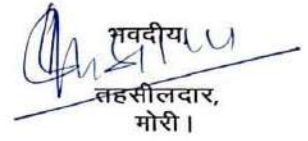 भवदीय,
तहसीलदार,
मोरी।